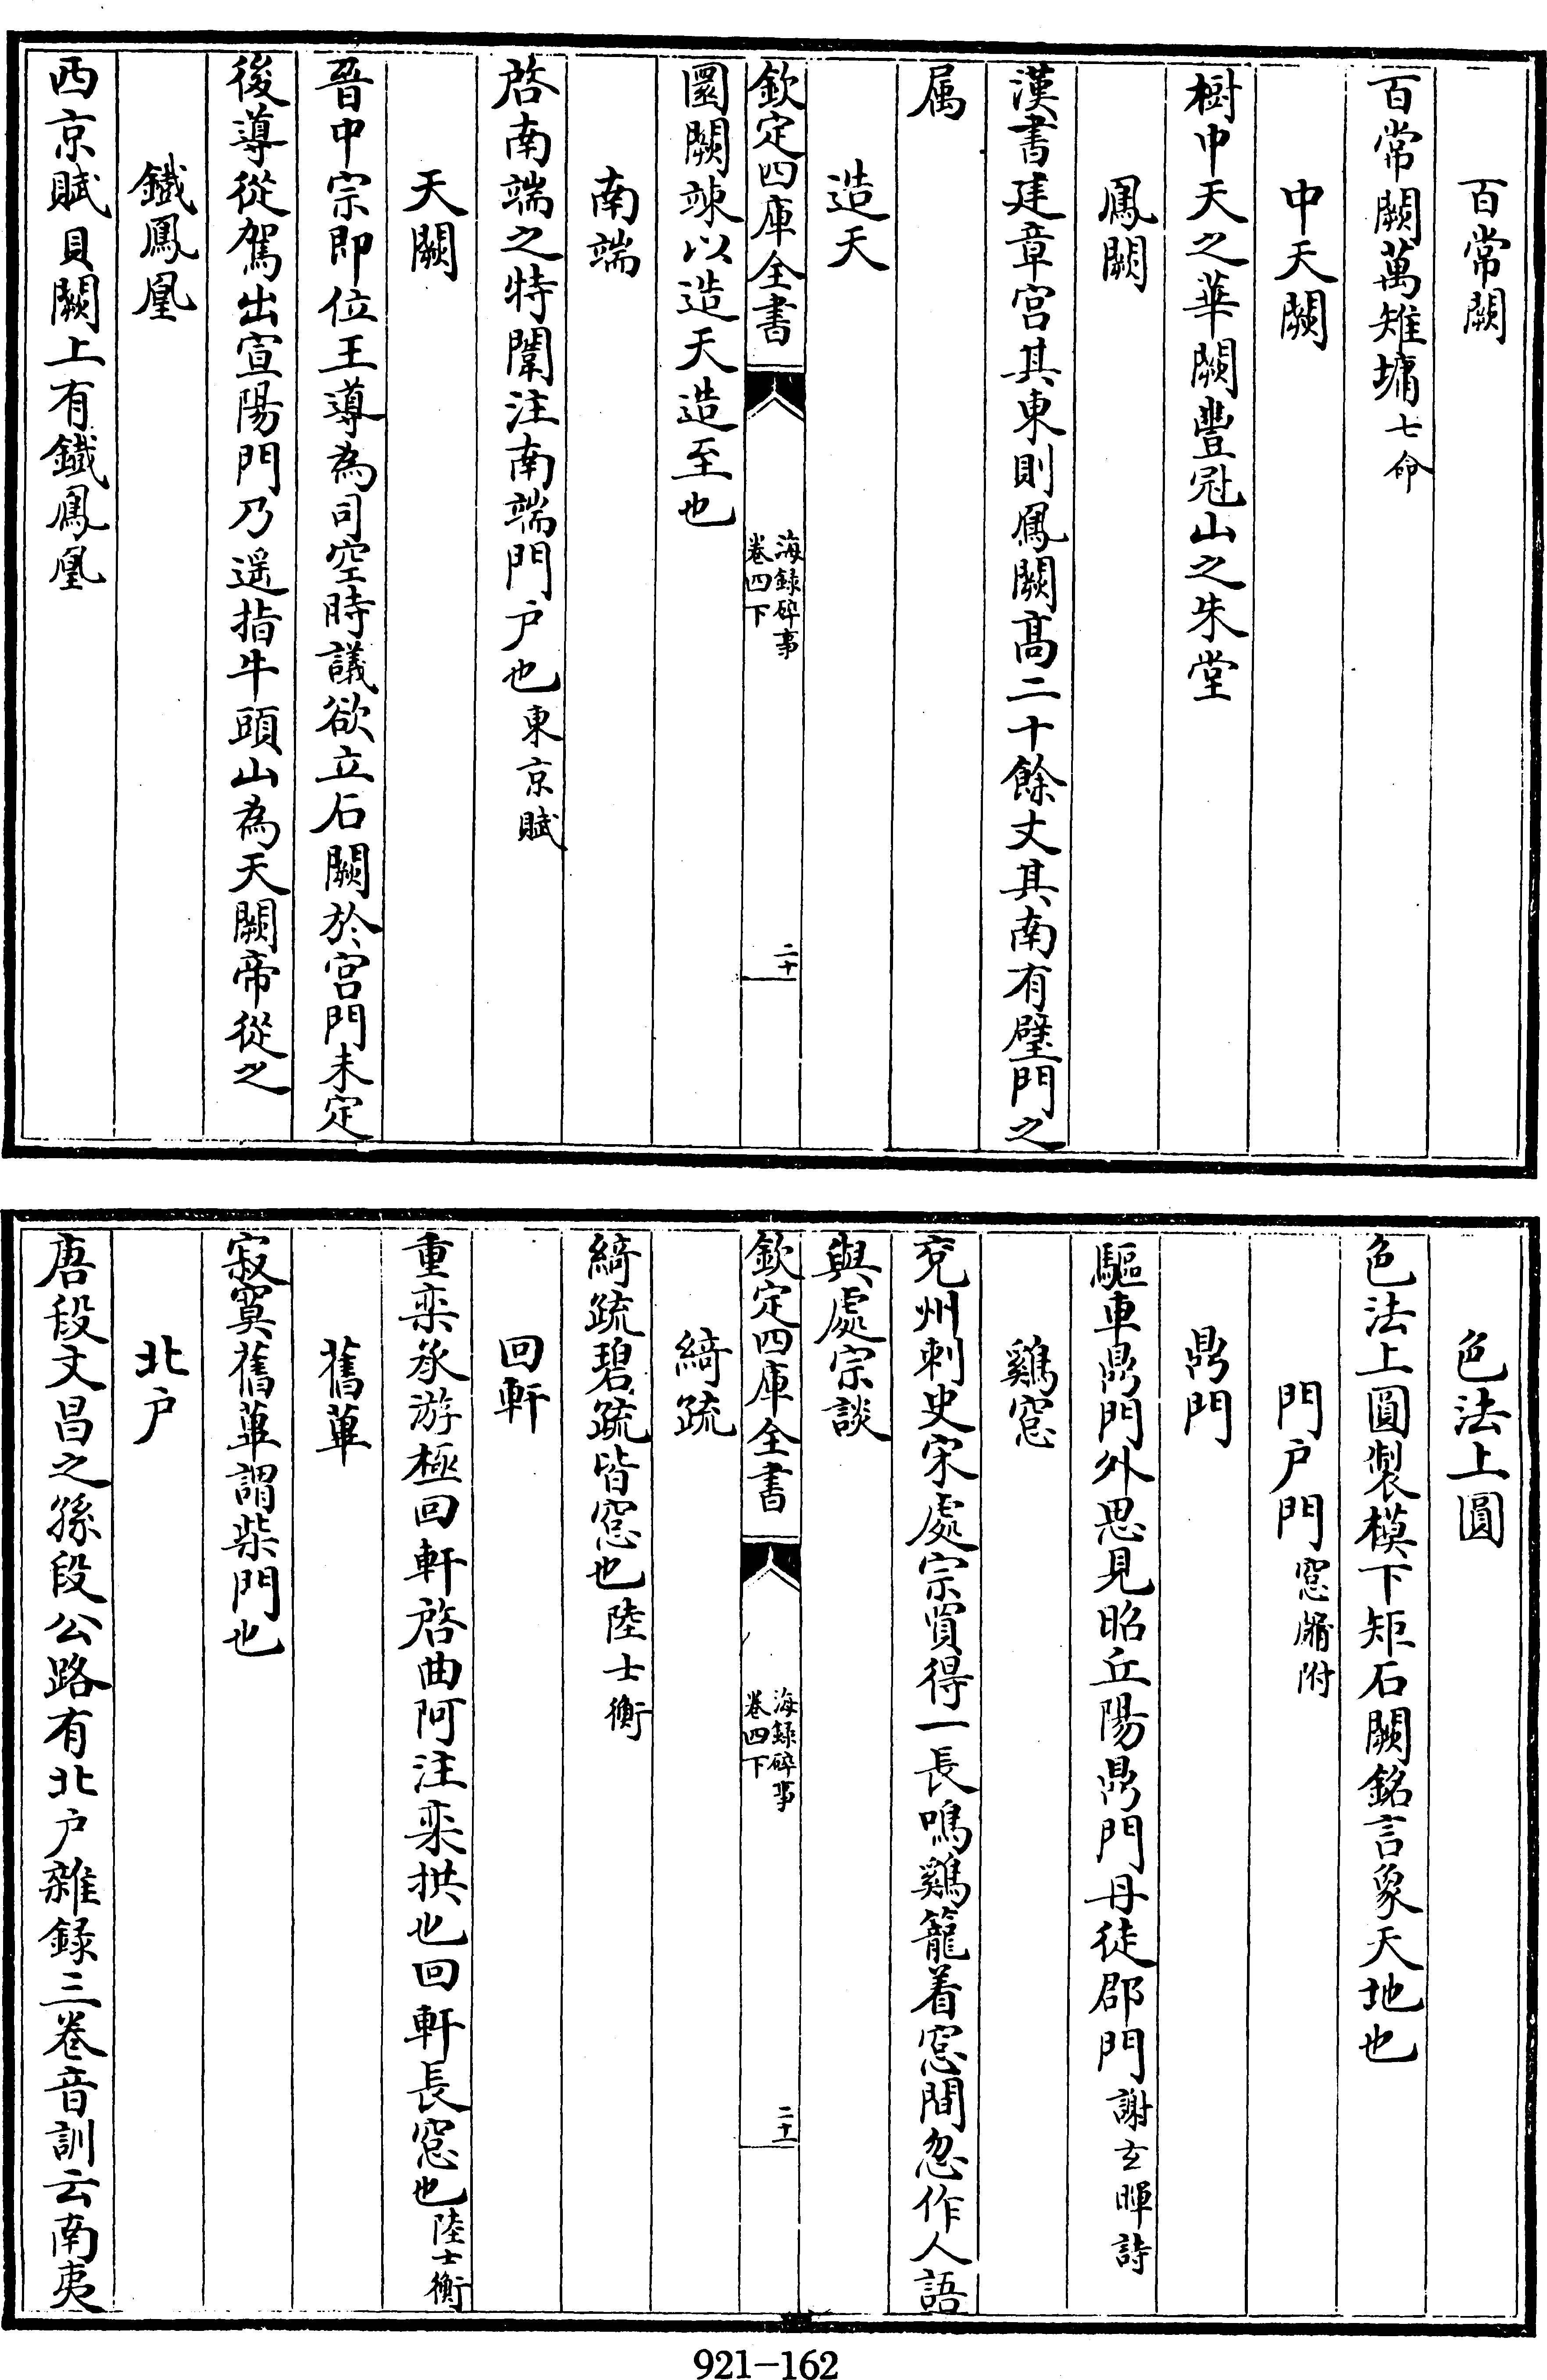 百常闕
百常闕萬雉墉七命
中天闕
樹中天之華闕豐冠山之朱堂
鳳闕
漢書建章宫其東則鳳闕髙二十餘丈其南有璧門之
属
造天
欽定四庫全書
海録碎事
卷四下
二十
圜闕竦以造天造至也
南端
啓南端之特闈注南端門户也東京賦
天闕
晉中宗即位王導為司空時議欲立石闕於宫門未定
後導從駕出宣陽門乃遥指牛頭山為天闕帝從之
鐵鳳凰
西京賦貝闕上有鐵鳳凰
色法上圓
色法上圓製模下矩石闕銘言象天地也
門户門窓牖附
鼎門
驅車鼎門外思見昭丘陽鼎門丹徒郡門謝玄暉詩
鷄窓
兖州刺史宋處宗買得一長鳴鷄籠着窓間忽作人語
與處宗談
欽定四庫全書
海録碎事
卷四下
二十一
綺疏
綺疏碧疏皆窓也陸士衡
回軒
重栾承游極回軒啓曲阿注栾拱也回軒長窓也陸士衡
舊蓽
寂寞舊蓽謂柴門也
北户
唐段文昌之孫段公路有北户雜録三卷音訓云南夷
921-162